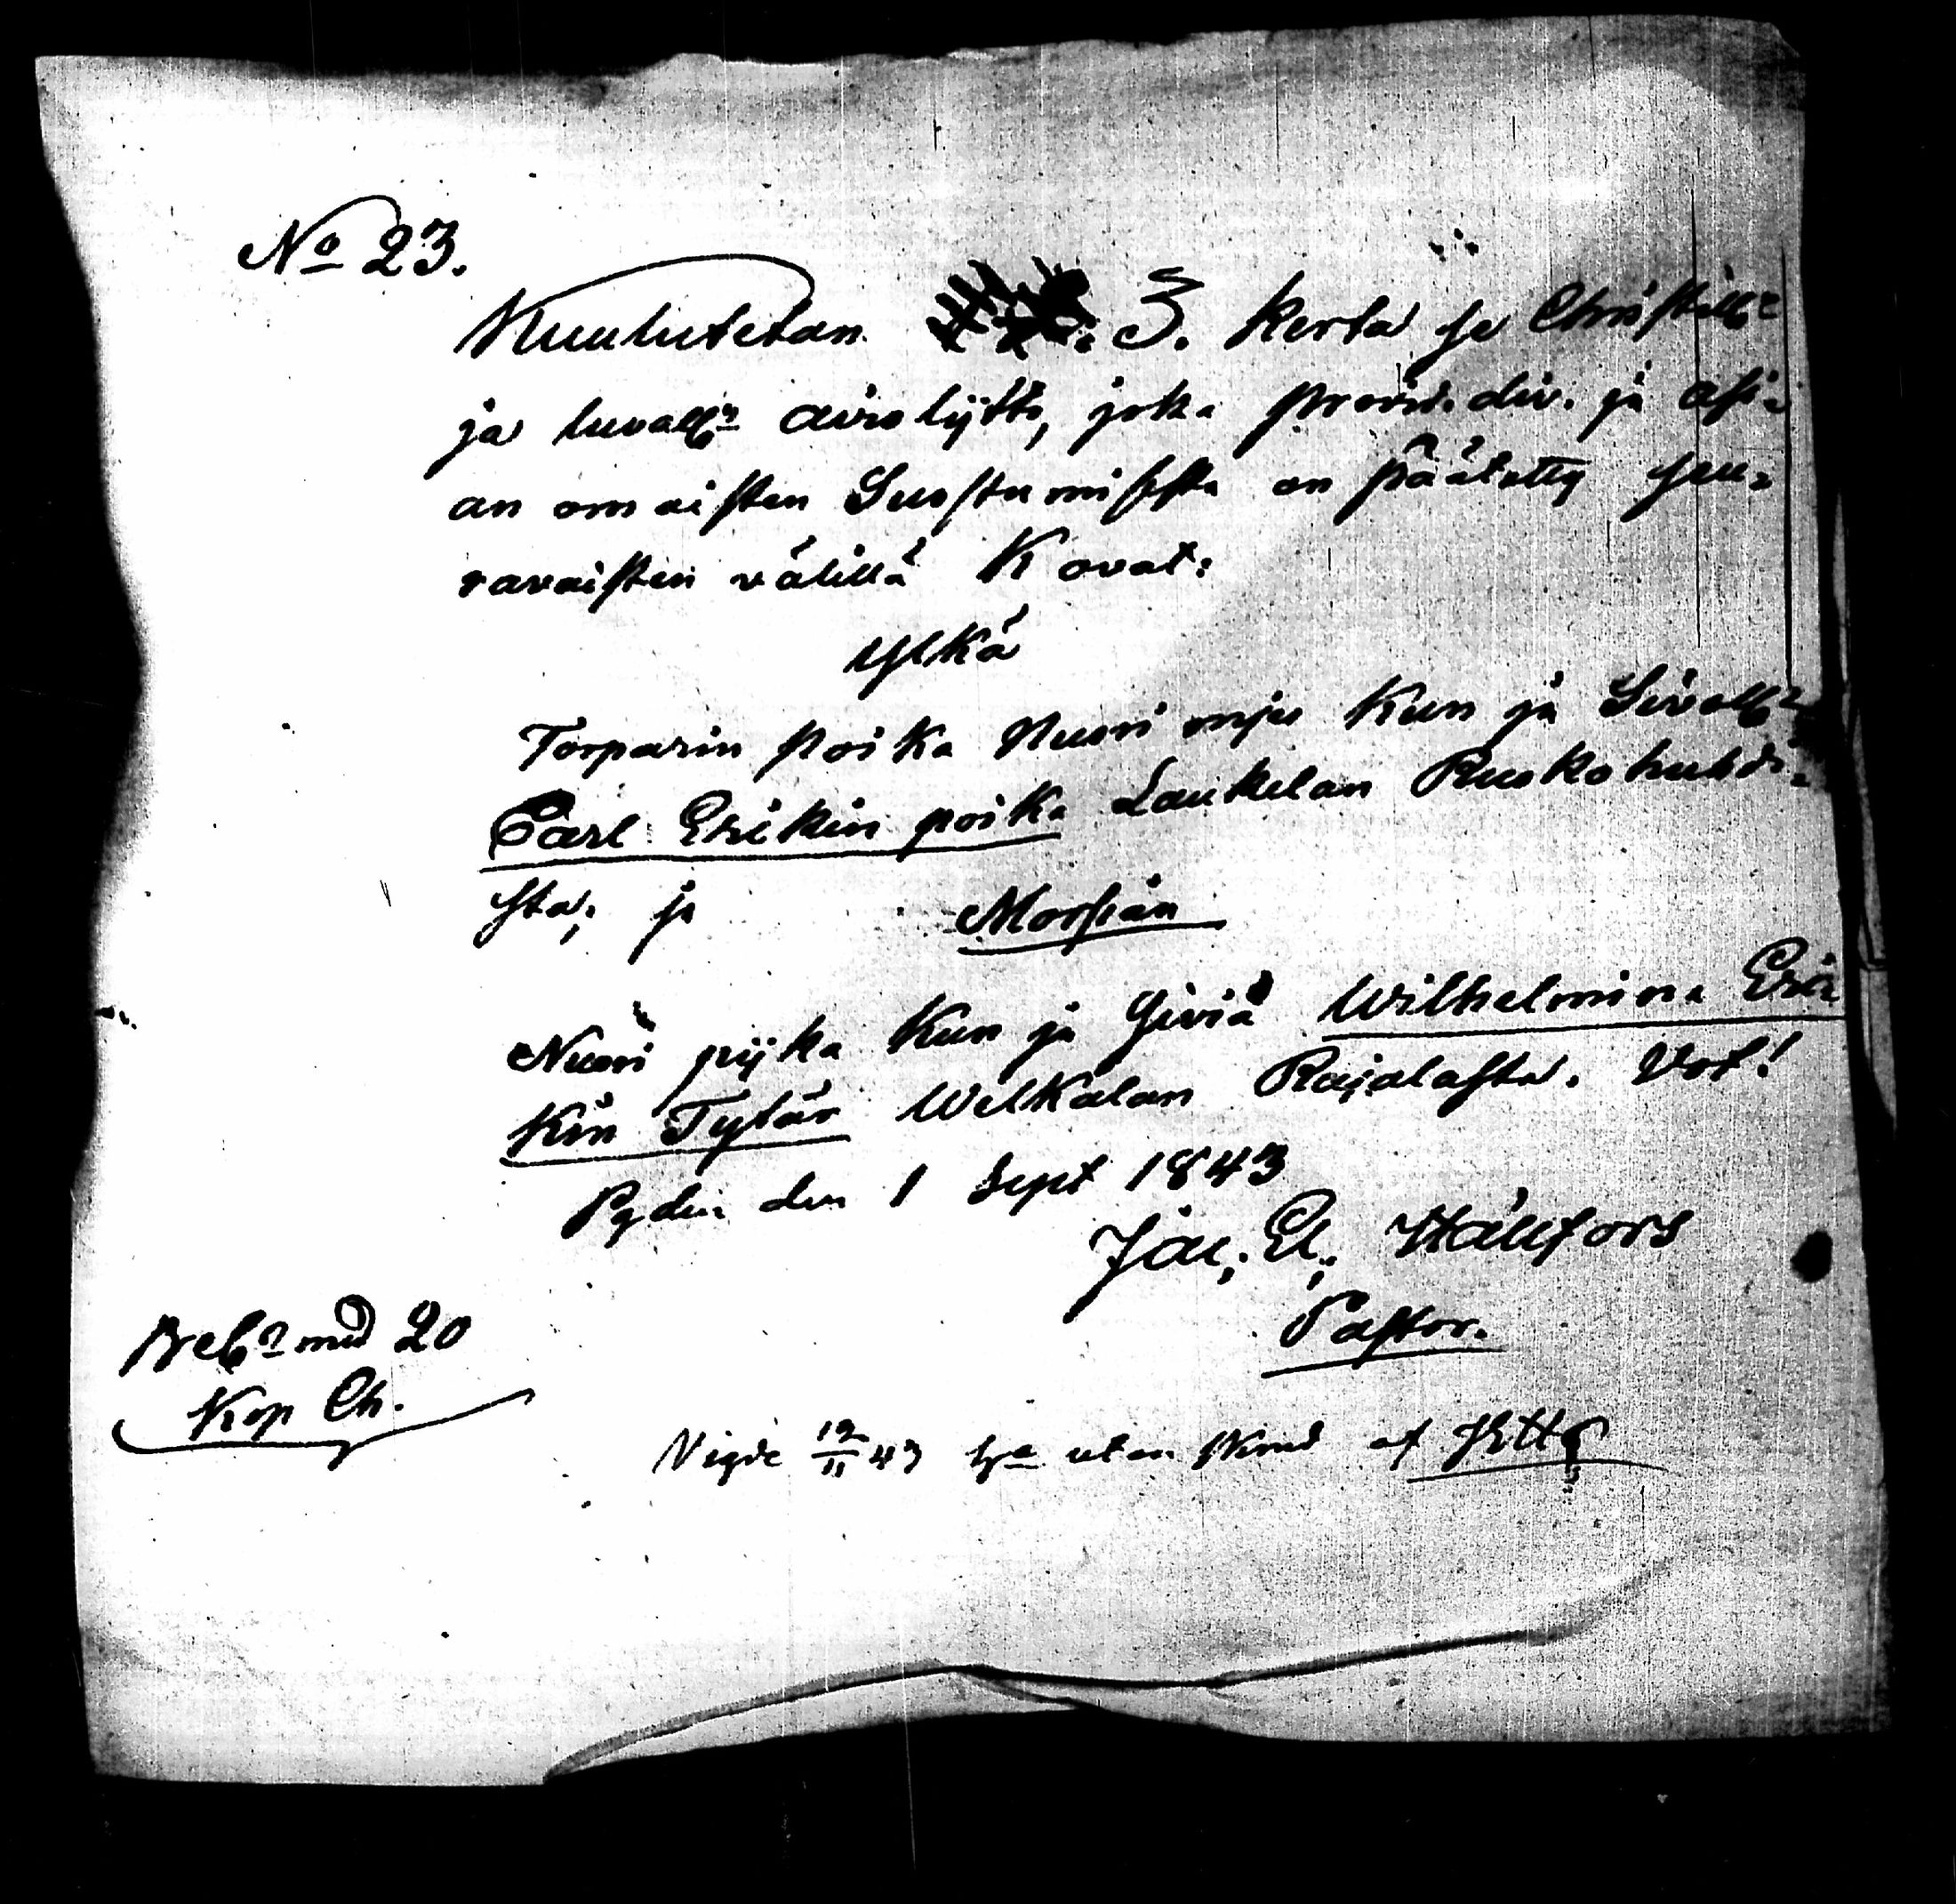 No 23.
Kuulutetan 3. kerta se Christill:
ja luvall: aviolijtto, joka provid. div. ja asi-
an omaisten Suostumisesta on päätetty seu-
ravaisten välillä K ovat:
Ylkä
Torparin poika Nuori mjes Kun ja Siväll:
Carl Erikin poika Laukelan Ruokohuhdi-
sta; ja Morsian
Nuori pijka Kun ja Siviä Wilhelmina Eri-
kin Tytär Welkälan Rajalasta. Vot!
Pyden den 1 Sept 1843
Jac; El; Hällfors
Pastor.
med 20
Kop Ch.
Vigde 12/11 43 utan af